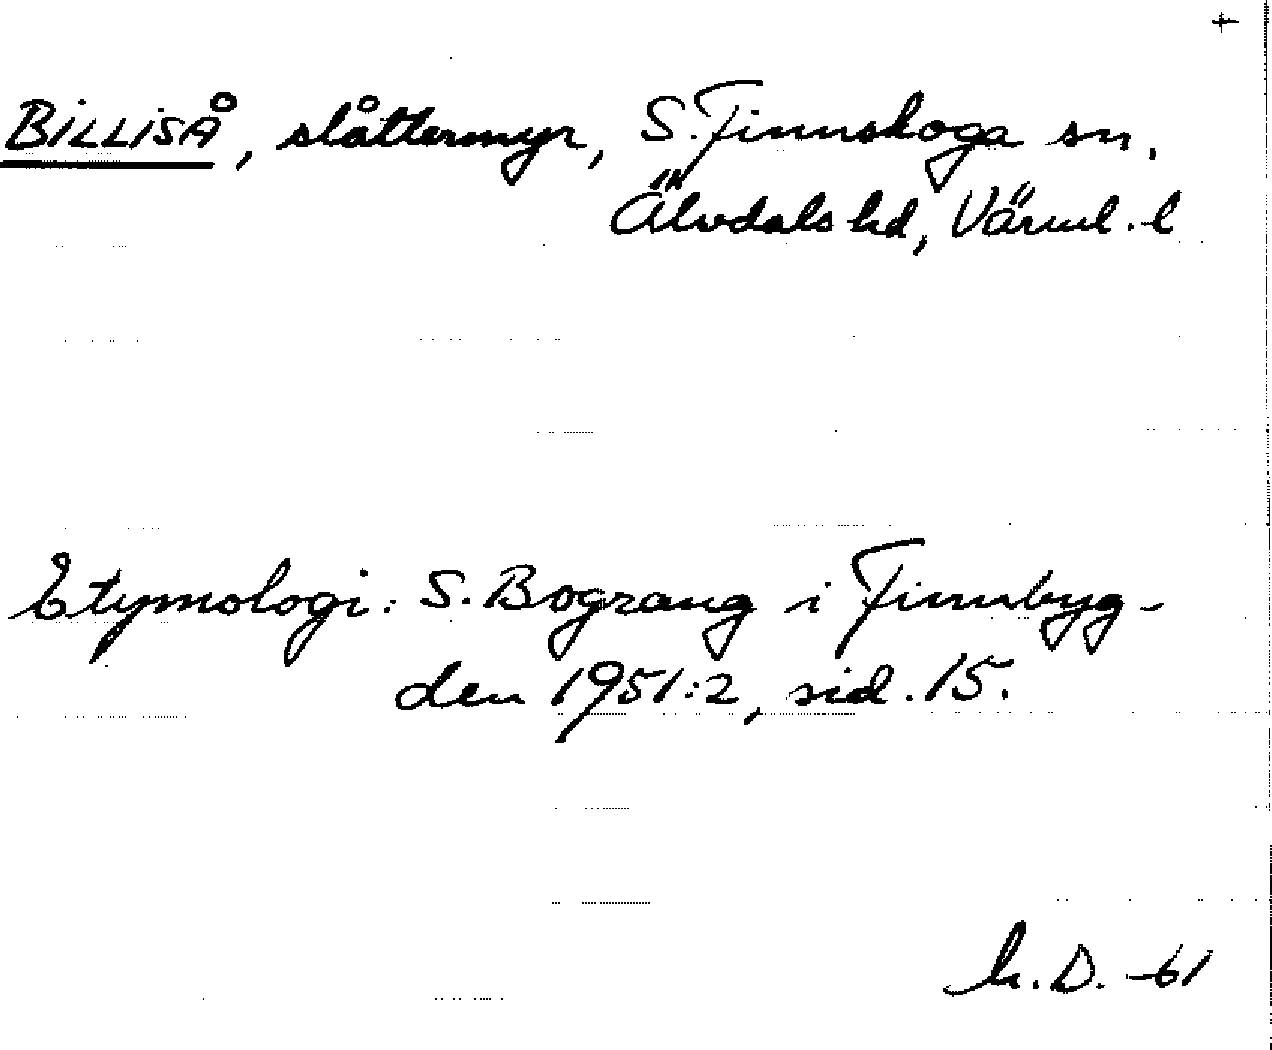 +
BILLISÅ, slåttermyr, S. Finnskoga sn,
Älvdals hd, Värml. l
Etymologi: S. Bograng i Finnbyg-
den 1951:2, sid. 15.
h. D. -61